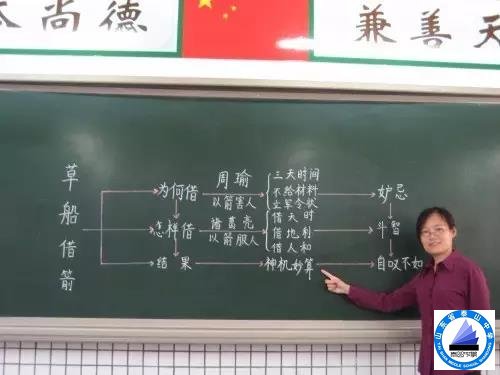 尚德
兼善天
草船借箭
为何借
周瑜
以箭害人
三天时间
不给材料
立军令状
妒忌
怎样借
诸葛亮
以箭服人
借天时
借地利
借人和
斗智
结果
神机妙算
自叹不如
山东省泰山中学